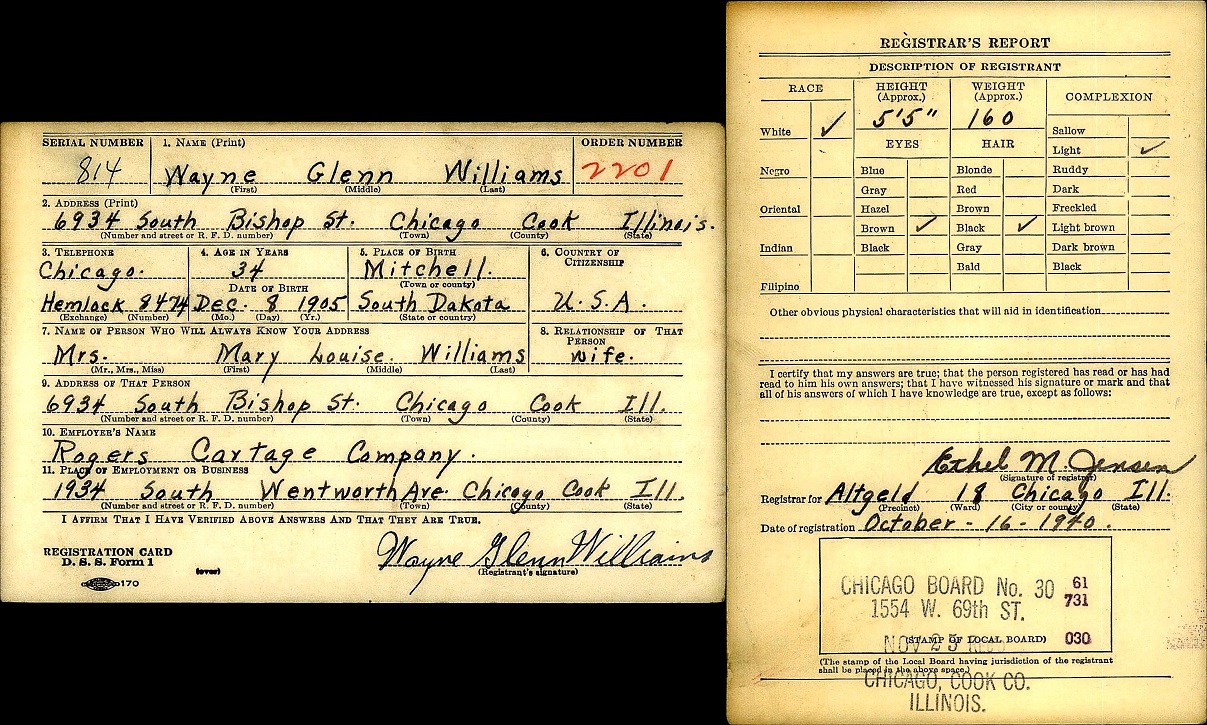 SERIAL NUMBER 1. NAME (Print) ORDER NUMBER
814 Wayne Glenn Williams 2201
(First) (Middle) (Last)
2. ADDRESS (Print)
6934 South Bishop St. Chicago Cook Illinois.
(Number and street or R. F. D. number) (Town) (County) (State)
3. TELEPHONE 4. AGE IN YEARS 5. PLACE OF BIRTH 6. COUNTRY OF CITIZENSHIP
Chicago. 34 Mitchell.
DATE OF BIRTH (Town or county)
Hemlock 8474 Dec. 8 1905 South Dakota U.S.A.
(Exchange) (Number) (Mo.) (Day) (Yr.) (State or country)
7. NAME OF PERSON WHO WILL ALWAYS KNOW YOUR ADDRESS 8. RELATIONSHIP OF THAT PERSON
Mrs. Mary Louise. Williams wife.
(Mr., Mrs., Miss) (First) (Middle) (Last)
9. ADDRESS OF THAT PERSON
6934 South Bishop St. Chicago Cook Ill.
(Number and street or R. F. D. number) (Town) (County) (State)
10. EMPLOYER'S NAME
Rogers Cartage Company.
11. PLACE OF EMPLOYMENT OR BUSINESS
1934 South Wentworth Ave. Chicago Cook Ill.
(Number and street or R. F. D. number) (Town) (County) (State)
I AFFIRM THAT I HAVE VERIFIED ABOVE ANSWERS AND THAT THEY ARE TRUE.
REGISTRATION CARD
D. S. S. Form 1 Wayne Glenn Williams
(over) (Registrant's signature)
170
REGISTRAR'S REPORT
DESCRIPTION OF REGISTRANT
RACE HEIGHT (Approx.) WEIGHT (Approx.) COMPLEXION
5'5" 160
White ✓ Sallow
EYES HAIR Light ✓
Negro Blue Blonde Ruddy
Gray Red Dark
Oriental Hazel Brown Freckled
Brown ✓ Black ✓ Light brown
Indian Black Gray Dark brown
Bald Black
Filipino
Other obvious physical characteristics that will aid in identification
I certify that my answers are true; that the person registered has read or has had
read to him his own answers; that I have witnessed his signature or mark and that
all of his answers of which I have knowledge are true, except as follows:
Ethel M. Jensen
(Signature of registrar)
Registrar for Altgeld 18 Chicago Ill.
(Precinct) (Ward) (City or county) (State)
Date of registration October - 16 - 1940.
CHICAGO BOARD No. 30 61
1554 W. 69th ST. 731
NOV 25
(STAMP OF LOCAL BOARD) 030
(The stamp of the Local Board having jurisdiction of the registrant
shall be placed in the above space.)
CHICAGO, COOK CO.
ILLINOIS.